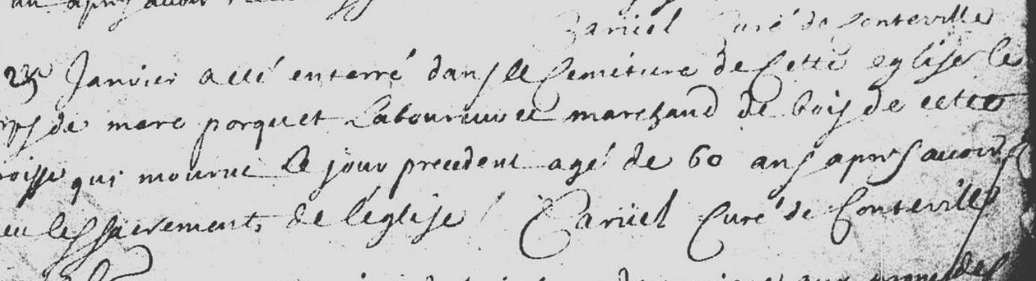 apres avoir
Caruel Curé de Conteville
23 Janvier a eté enterré dans le Cemetiere de Cette eglise le
rps de marc porquet Laboureur et marchand de bois de cette
roisse qui mourut le jour precedent agé de 60 ans apres avoir
eu les sacrements de léglise / Caruel Curé de Conteville